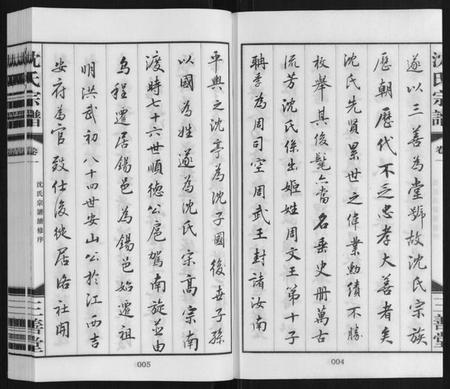 沈氏宗譜
卷一
三善堂
遂以三善為堂號故沈氏宗族
歷朝歷代不乏忠孝大善者矣
沈氏先賢累世之偉業勳績不勝
枚舉其後髦亦當名垂史冊萬古
流芳沈氏係出姬姓周文王第十子
聃季為周司空周武王封諸汝南
004
平輿之沈亭為沈子國後世子孫
以國為姓遂為沈氏宗高宗南
渡時七十六世順德公扈駕南旋並由
烏程遷居錫邑為錫邑始遷祖
明洪武初八十四世安山公於江西吉
安府為官致仕後從居洛社開
005
沈氏宗譜
卷一
沈氏宗譜續修序
三善堂